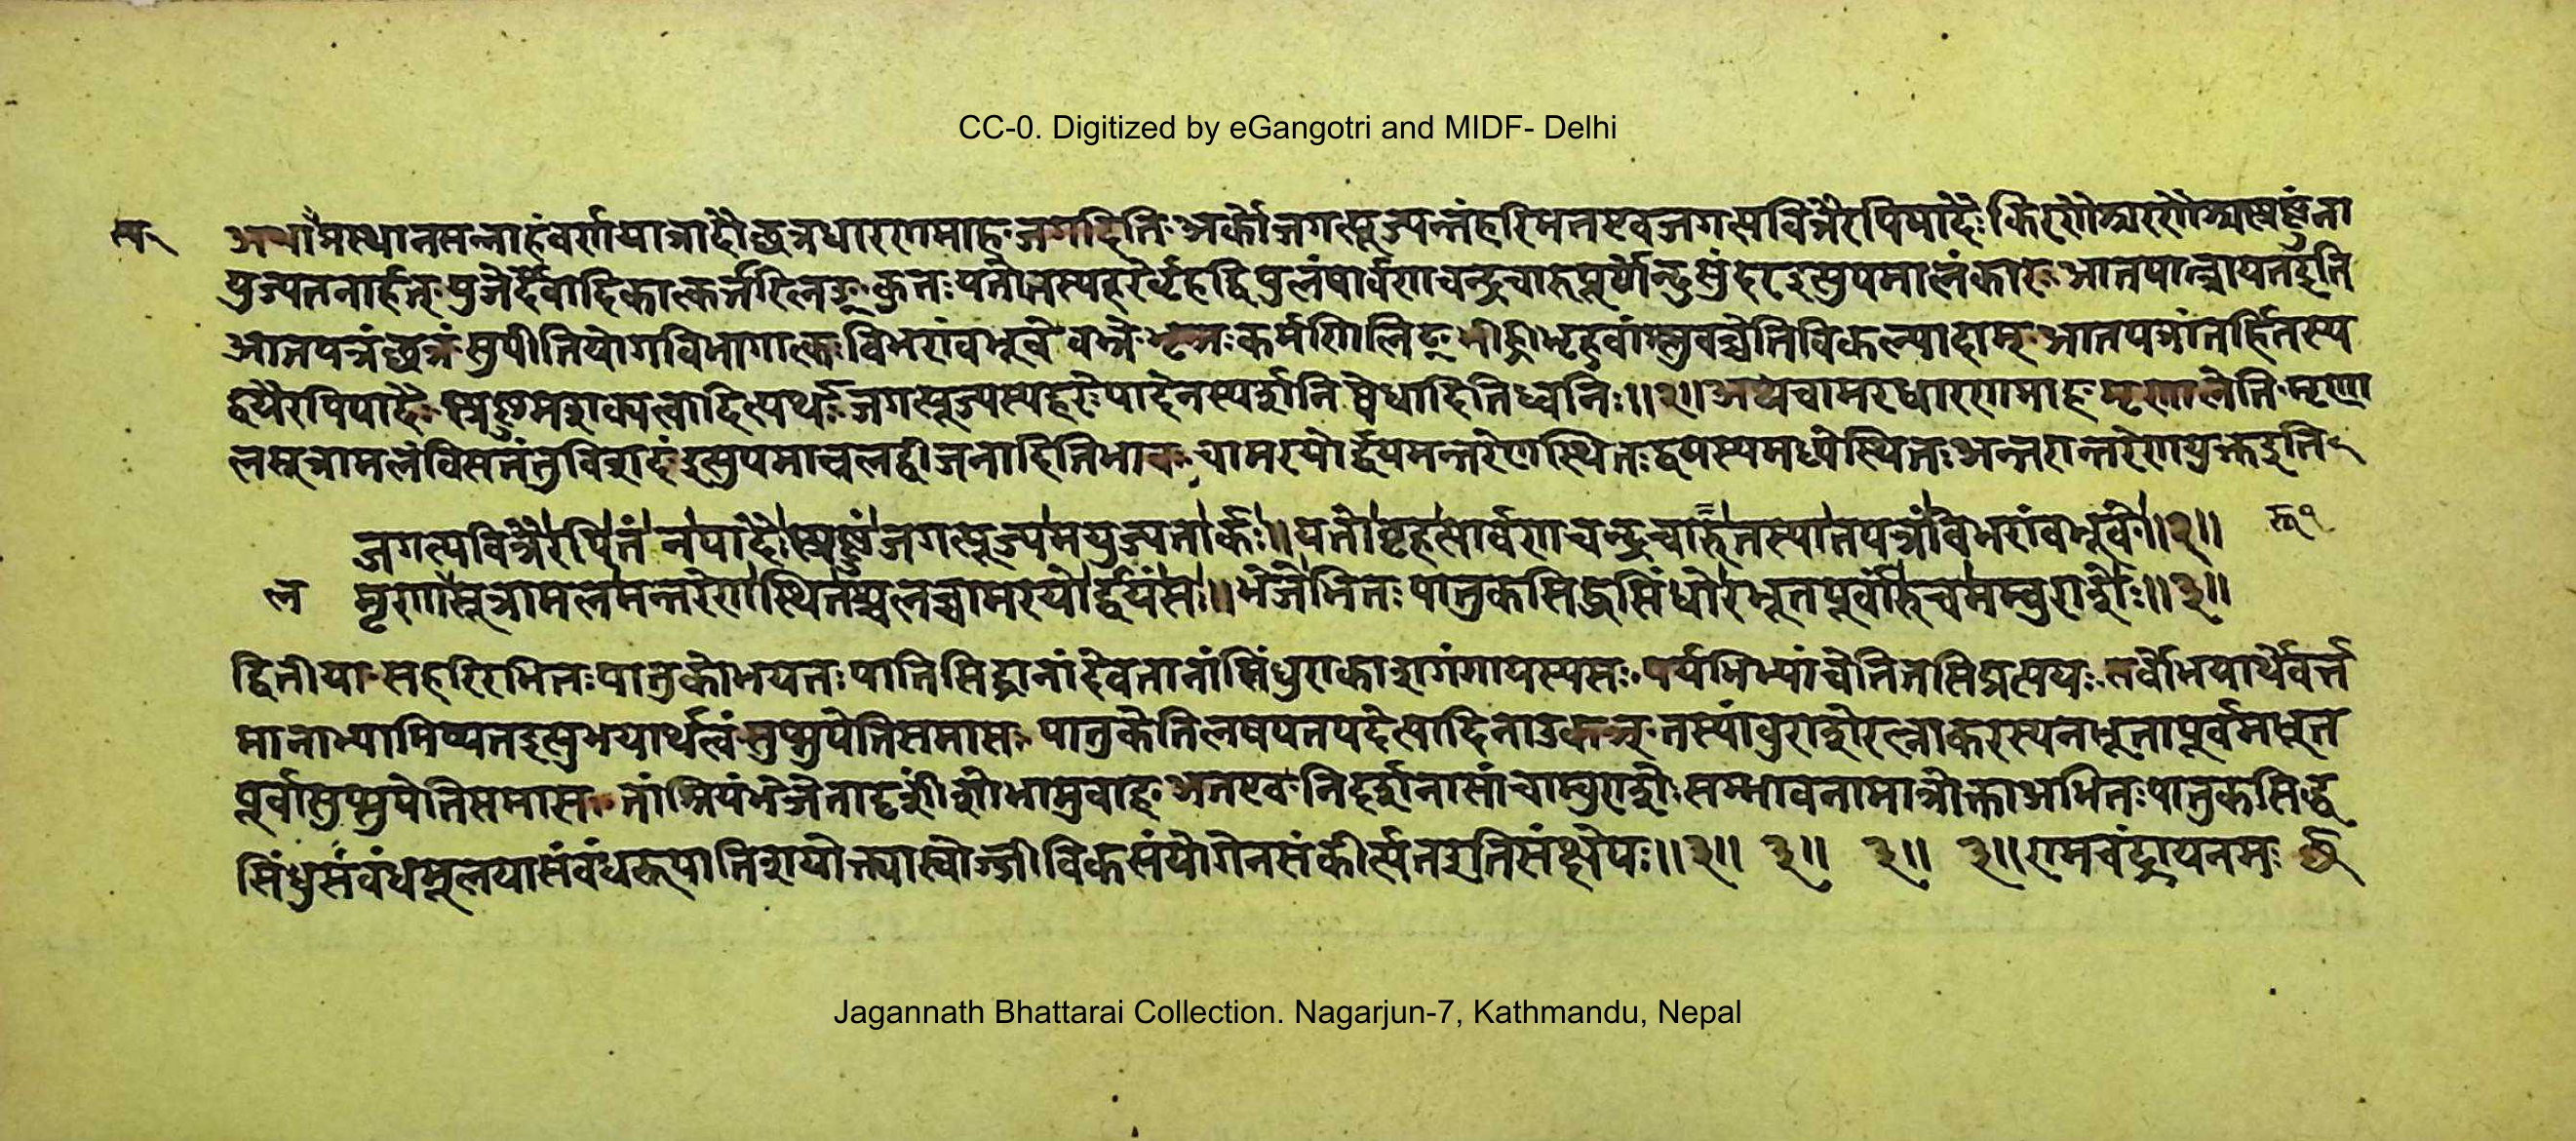 CC-0. Digitized by eGangotri and MIDF- Delhi
अथाष्टमस्थानसन्नाहंवर्णयात्रादौछत्रधारणमाह जगदिति अर्को जगत्पूज्यन्तंहरिमतएवजगत्पवित्रैरपिपादैः किरणैश्चरणैश्चस्प्रष्टुंना
युज्यतनार्हत् युजेर्दैवादिकात्कर्त्तरिलङ् कुतः यतोतस्यहरेर्बृहद्विपुलंपार्वणचन्द्रचारुपूर्णेन्दुसुंदरइत्युपमालंकारः आतपात्त्रायतइति
आतपत्रंछत्रं सुपीतियोगविभागात्कः विभरांबभूवे बभ्रे भृञः कर्मणिलिट् भीह्रीभृहुवांश्लुवच्चेतिविकल्पादाम् आतपत्रांतर्हितस्य
द्वयैरपिपादैः स्प्रष्टुमशक्यत्वादित्यर्थः जगत्पूज्यस्यहरेः पादेनस्पर्शनिषेधादितिध्वनिः ॥२॥ अथचामरधारणमाह मृणालेति मृणा
लसूत्रामलंविसतंतुविशदंइत्युपमाचलद्वीजनादितिभावः चामरयोर्द्वयमन्तरेणस्थितः द्वयस्यमध्येस्थितः अन्तरान्तरेणयुक्तइति
जगत्पवित्रैरपितंनपादैःस्प्रष्टुंजगत्पूज्यमयुज्यतार्कः ॥ यतोबृहत्पार्वणचन्द्रचारुतस्यातपत्रंविभरांबभूवे ॥२॥
ल मृणासूत्रामलमन्तरेणस्थितश्चलच्चामरयोर्द्वयंसः ॥ भेजेभितः पातुकसिद्धसिंधोरभूतपूर्वांरुचमम्बुराशेः ॥३॥
द्वितीया सहरिरभितः पातुकोभयतः पातिसिद्धानांदेवतानांसिंधुराकाशगंगायस्यसः पर्यभिभ्यांचेतितसिप्रत्ययः सर्वोभयार्थेवर्त्त
मानाभ्यामिष्यतइत्युभयार्थत्वं सुप्सुपेतिसमासः पातुकेतिलषपतपदेत्यादिनाउकञ् तस्यांबुराशेरत्नाकरस्यनभूतापूर्वमभूत
पूर्वासुप्सुपेतिसमासः तांश्रियंभेजेतादृशींशोभामुवाह अतएवनिदर्शनासांचाम्बुराशेः सम्भावनामात्रोक्ताअभितः पातुकसिद्ध
सिंधुसंबंधमूलयासंबंधरूपातिशयोक्त्यास्वोज्जीविकसंयोगेनसंकीर्त्यतइतिसंक्षेपः ॥३॥ ३॥ ३॥ ३॥ रामचंद्रायनमः
Jagannath Bhattarai Collection. Nagarjun-7, Kathmandu, Nepal